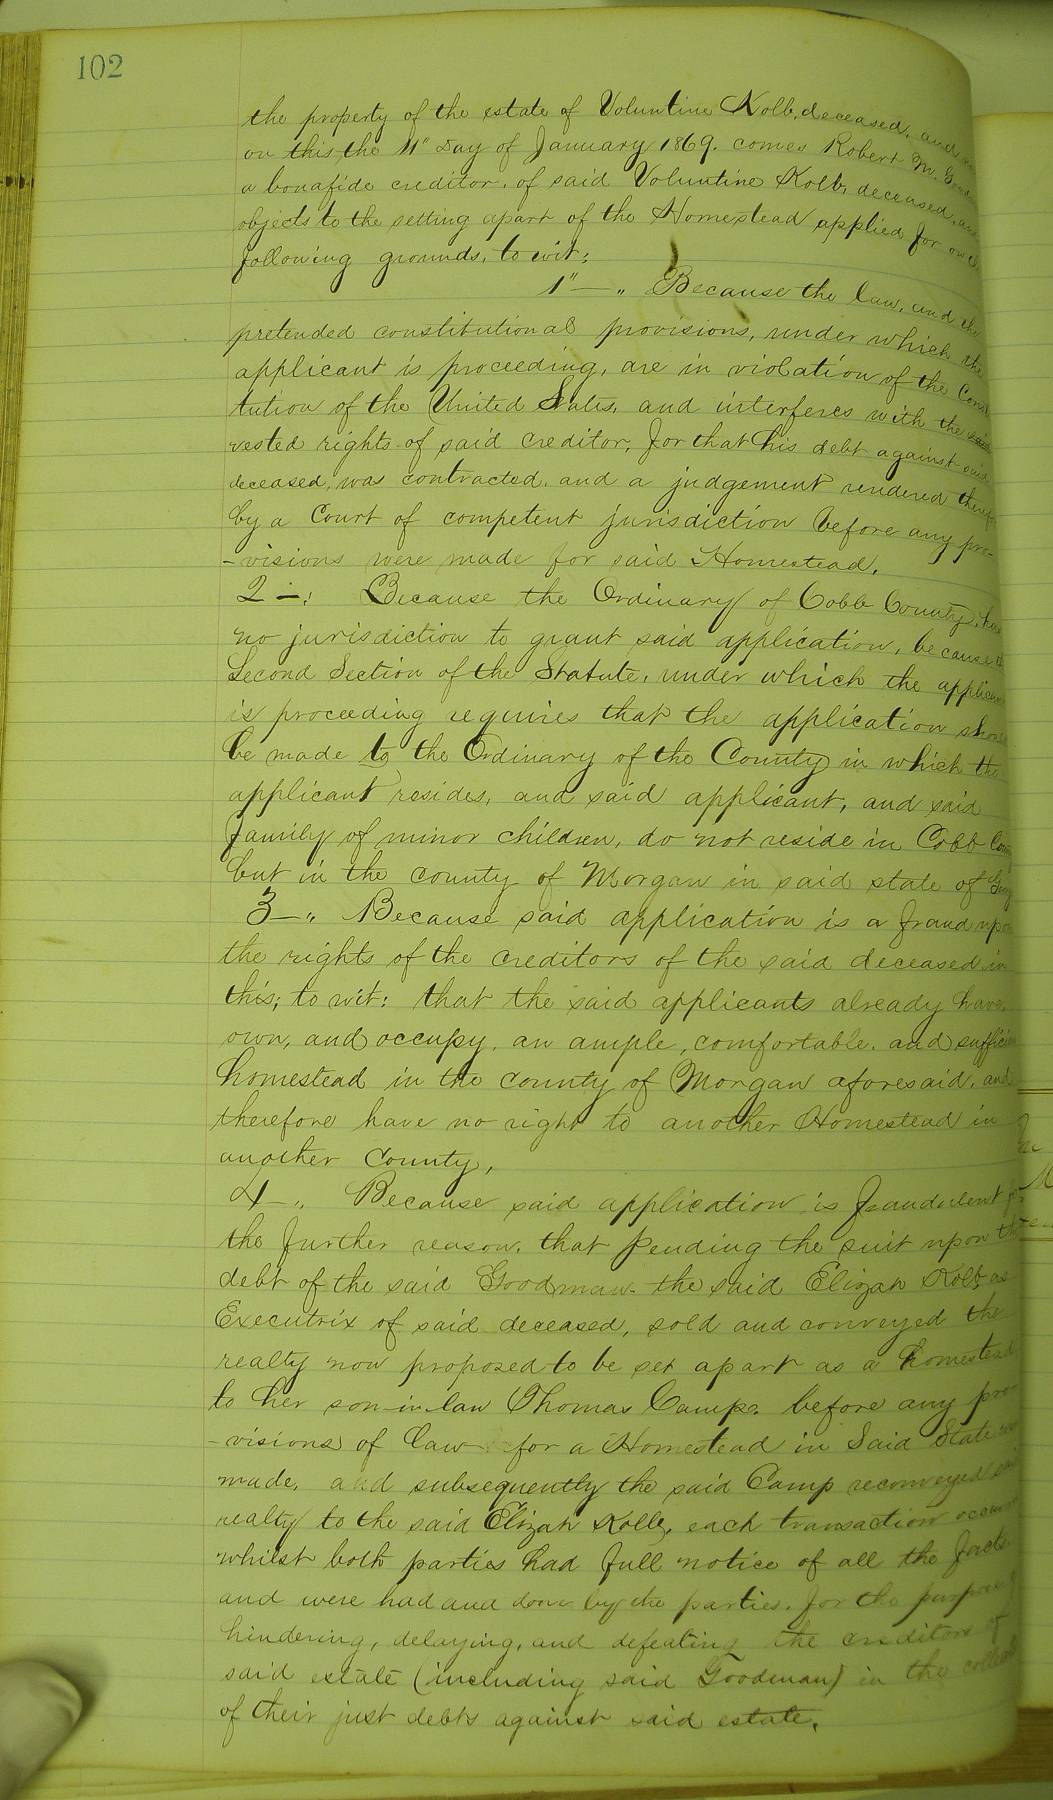 102
the property of the estate of Voluntine Kolb, deceased, and
on this the 11" Day of January 1869. comes Robert M.
a bonafide creditor, of said Voluntine Kolb, deceased, and
objects to the setting apart of the Homestead applied for on
following grounds, to wit:
1" —" Because the law, and the
pretended constitutional provisions, under which the
applicant is proceeding, are in violation of the Consti
tution of the United States, and interferes with the
vested rights of said creditor, for that his debt against said
deceased, was contracted, and a judgement rendered therefor
by a Court of competent jurisdiction before any pro-
-visions were made for said Homestead.
2 —: Because the Ordinary of Cobb County, has
no jurisdiction to grant said application, because the
Second Section of the Statute, under which the applicant
is proceeding requires that the application should
be made to the Ordinary of the County in which the
applicant resides, and said applicant, and said
family of minor children, do not reside in Cobb County
but in the county of Morgan in said state of
3 —" Because said application is a fraud upon
the rights of the creditors of the said deceased in
this; to wit: that the said applicants already have,
own, and occupy, an ample, comfortable, and sufficient
homestead in the county of Morgan aforesaid, and
therefore have no right to another Homestead in
another County,
4 —. Because said application is fraudulent for
the further reason, that pending the suit upon the
debt of the said Goodman the said Elizah Kolb, as
Executrix of said deceased, sold and conveyed the
realty now proposed to be set apart as a homestead
to her son-in-law Thomas Camp. before any pro-
-visions of law for a Homestead in Said State
made, and subsequently the said Camp reconveyed said
realty to the said Elizah Kolb, each transaction
whilst both parties had full notice of all the facts
and were had and done by the parties, for the purpose of
hindering, delaying, and defeating the creditors of
said estate (including said Goodman) in the
of their just debts against said estate.